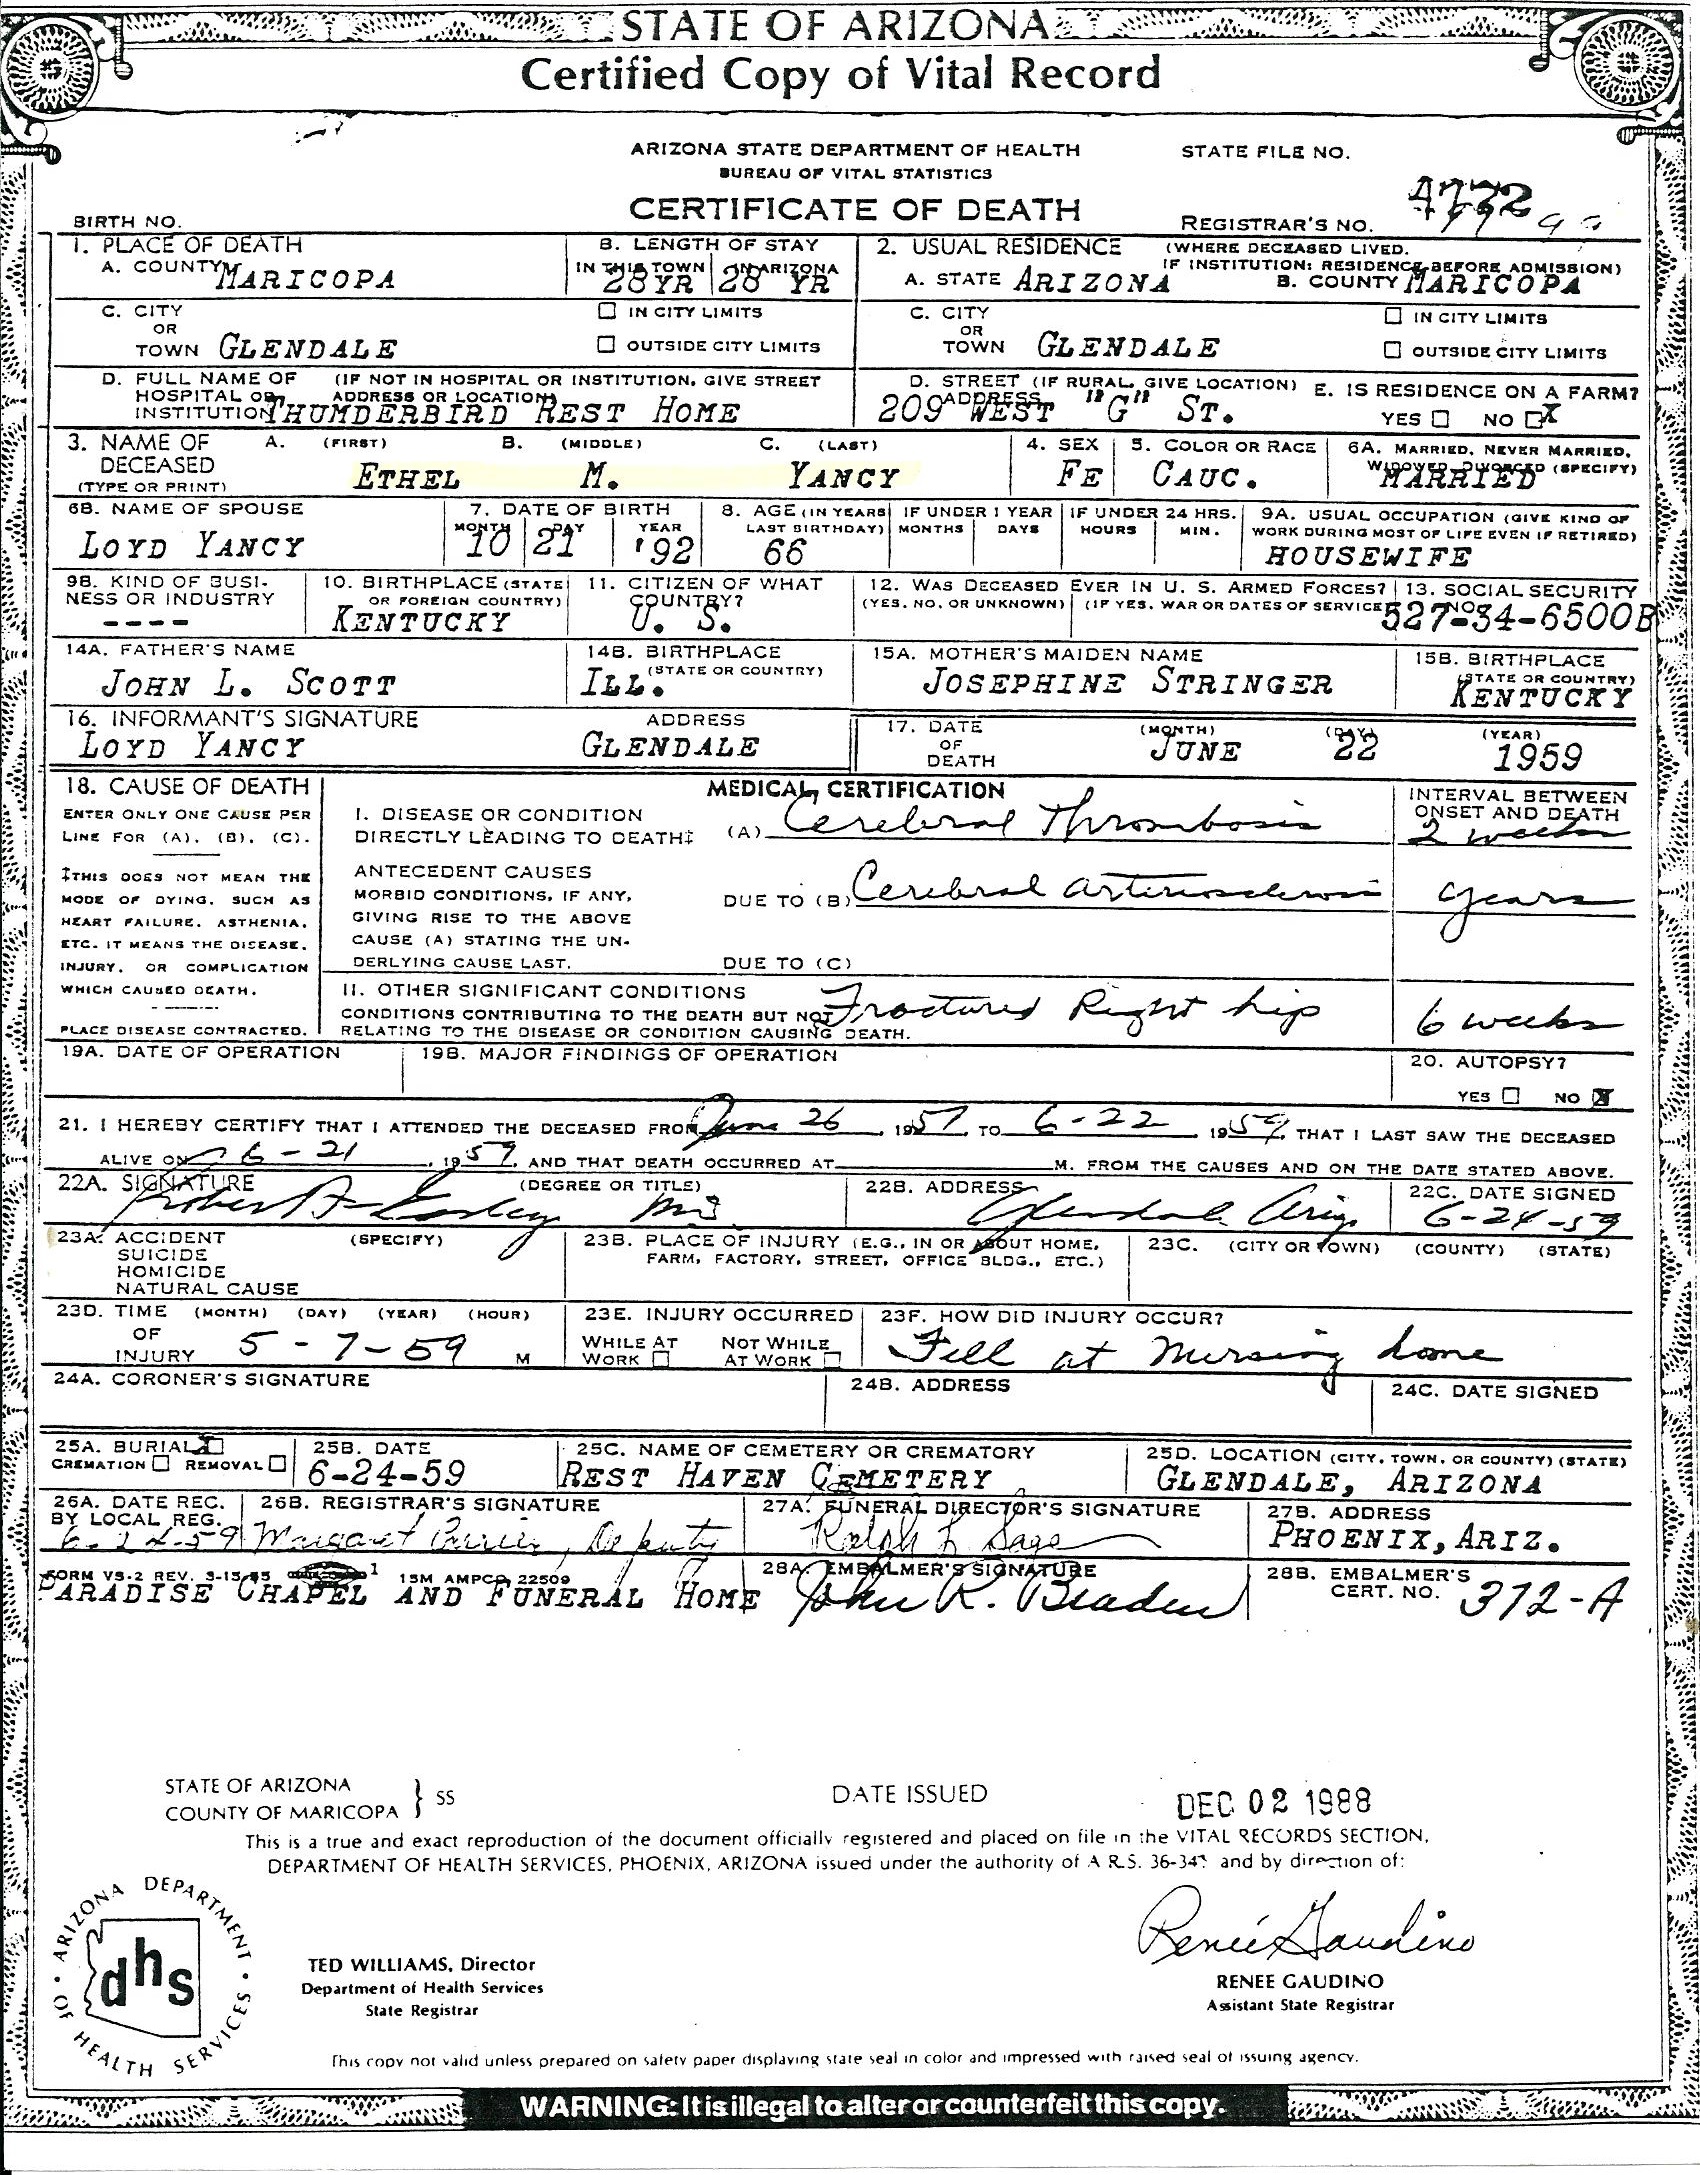 STATE OF ARIZONA
Certified Copy of Vital Record
ARIZONA STATE DEPARTMENT OF HEALTH
BUREAU OF VITAL STATISTICS
CERTIFICATE OF DEATH
STATE FILE NO.
BIRTH NO.
REGISTRAR'S NO.
1. PLACE OF DEATH
A. COUNTY MARICOPA
B. LENGTH OF STAY
IN THIS TOWN 28 YR IN ARIZONA 28 YR
2. USUAL RESIDENCE (WHERE DECEASED LIVED.
IF INSTITUTION: RESIDENCE BEFORE ADMISSION)
A. STATE ARIZONA B. COUNTY MARICOPA
C. CITY OR TOWN GLENDALE
IN CITY LIMITS
OUTSIDE CITY LIMITS
C. CITY OR TOWN GLENDALE
IN CITY LIMITS
OUTSIDE CITY LIMITS
D. FULL NAME OF HOSPITAL OR INSTITUTION (IF NOT IN HOSPITAL OR INSTITUTION, GIVE STREET ADDRESS OR LOCATION)
THUMDERBIRD REST HOME
D. STREET ADDRESS (IF RURAL, GIVE LOCATION)
209 WEST "G" ST.
E. IS RESIDENCE ON A FARM?
YES NO X
3. NAME OF DECEASED (TYPE OR PRINT)
A. (FIRST) B. (MIDDLE) C. (LAST)
ETHEL M. YANCY
4. SEX FE
5. COLOR OR RACE CAUC.
6A. MARRIED, NEVER MARRIED, WIDOWED, DIVORCED (SPECIFY)
MARRIED
6B. NAME OF SPOUSE
LOYD YANCY
7. DATE OF BIRTH
MONTH DAY YEAR
10 21 '92
8. AGE (IN YEARS LAST BIRTHDAY)
66
IF UNDER 1 YEAR MONTHS DAYS
IF UNDER 24 HRS. HOURS MIN.
9A. USUAL OCCUPATION (GIVE KIND OF WORK DURING MOST OF LIFE EVEN IF RETIRED)
HOUSEWIFE
9B. KIND OF BUSI-
NESS OR INDUSTRY
----
10. BIRTHPLACE (STATE OR FOREIGN COUNTRY)
KENTUCKY
11. CITIZEN OF WHAT COUNTRY?
U. S.
12. WAS DECEASED EVER IN U. S. ARMED FORCES?
(YES, NO, OR UNKNOWN) (IF YES, WAR OR DATES OF SERVICE
13. SOCIAL SECURITY NO.
527-34-6500B
14A. FATHER'S NAME
JOHN L. SCOTT
14B. BIRTHPLACE (STATE OR COUNTRY)
ILL.
15A. MOTHER'S MAIDEN NAME
JOSEPHINE STRINGER
15B. BIRTHPLACE (STATE OR COUNTRY)
KENTUCKY
16. INFORMANT'S SIGNATURE ADDRESS
LOYD YANCY GLENDALE
17. DATE OF DEATH
(MONTH) (DAY) (YEAR)
JUNE 22 1959
18. CAUSE OF DEATH
ENTER ONLY ONE CAUSE PER
LINE FOR (A), (B), (C).
‡THIS DOES NOT MEAN THE
MODE OF DYING, SUCH AS
HEART FAILURE, ASTHENIA,
ETC. IT MEANS THE DISEASE,
INJURY, OR COMPLICATION
WHICH CAUSED DEATH.
PLACE DISEASE CONTRACTED.
MEDICAL CERTIFICATION
INTERVAL BETWEEN
ONSET AND DEATH
I. DISEASE OR CONDITION
DIRECTLY LEADING TO DEATH‡ (A) Cerebral Thrombosis 2 weeks
ANTECEDENT CAUSES
MORBID CONDITIONS, IF ANY,
GIVING RISE TO THE ABOVE
CAUSE (A) STATING THE UN-
DERLYING CAUSE LAST.
DUE TO (B) Cerebral arteriosclerosis years
DUE TO (C)
II. OTHER SIGNIFICANT CONDITIONS
CONDITIONS CONTRIBUTING TO THE DEATH BUT NOT
RELATING TO THE DISEASE OR CONDITION CAUSING DEATH.
Fractured Right hip 6 weeks
19A. DATE OF OPERATION
19B. MAJOR FINDINGS OF OPERATION
20. AUTOPSY?
YES NO X
21. I HEREBY CERTIFY THAT I ATTENDED THE DECEASED FROM June 26, 1957, TO 6-22, 1959, THAT I LAST SAW THE DECEASED
ALIVE ON 6-21, 1959, AND THAT DEATH OCCURRED AT M. FROM THE CAUSES AND ON THE DATE STATED ABOVE.
22A. SIGNATURE (DEGREE OR TITLE)
Robert MD.
22B. ADDRESS
Glendale Ariz
22C. DATE SIGNED
6-24-59
23A. ACCIDENT (SPECIFY)
SUICIDE
HOMICIDE
NATURAL CAUSE
23B. PLACE OF INJURY (E.G., IN OR ABOUT HOME,
FARM, FACTORY, STREET, OFFICE BLDG., ETC.)
23C. (CITY OR TOWN) (COUNTY) (STATE)
23D. TIME OF INJURY (MONTH) (DAY) (YEAR) (HOUR)
5-7-59 M
23E. INJURY OCCURRED
WHILE AT WORK NOT WHILE AT WORK
23F. HOW DID INJURY OCCUR?
Fell at Nursing home
24A. CORONER'S SIGNATURE
24B. ADDRESS
24C. DATE SIGNED
25A. BURIAL X
CREMATION REMOVAL
25B. DATE
6-24-59
25C. NAME OF CEMETERY OR CREMATORY
REST HAVEN CEMETERY
25D. LOCATION (CITY, TOWN, OR COUNTY) (STATE)
GLENDALE, ARIZONA
26A. DATE REC. BY LOCAL REG.
6-24-59
26B. REGISTRAR'S SIGNATURE
Margaret Deputy
27A. FUNERAL DIRECTOR'S SIGNATURE
Ralph L Sage
27B. ADDRESS
PHOENIX, ARIZ.
FORM VS-2 REV. 15M AMPCO 22509
PARADISE CHAPEL AND FUNERAL HOME
28A. EMBALMER'S SIGNATURE
John R. Braden
28B. EMBALMER'S CERT. NO.
372-A
STATE OF ARIZONA
COUNTY OF MARICOPA } SS
DATE ISSUED DEC 02 1988
This is a true and exact reproduction of the document officially registered and placed on file in the VITAL RECORDS SECTION,
DEPARTMENT OF HEALTH SERVICES, PHOENIX, ARIZONA issued under the authority of A.R.S. and by direction of:
ARIZONA DEPARTMENT OF HEALTH SERVICES
dhs
TED WILLIAMS, Director
Department of Health Services
State Registrar
Renée Gaudino
RENEE GAUDINO
Assistant State Registrar
This copy not valid unless prepared on safety paper displaying state seal in color and impressed with raised seal of issuing agency.
WARNING: It is illegal to alter or counterfeit this copy.